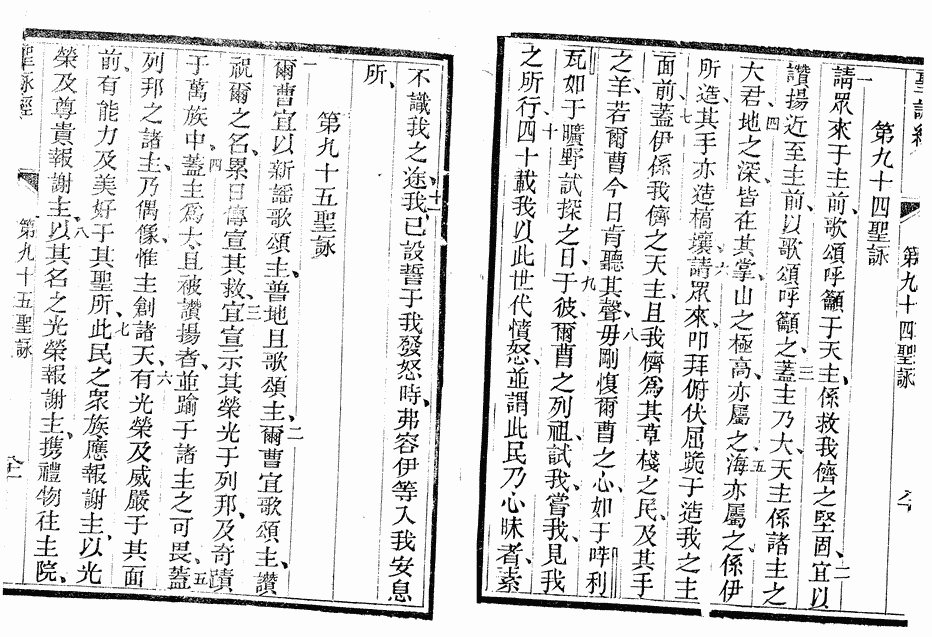 聖詠經
第九十四聖詠
第九十四聖詠
一
請眾來于主前、歌頌呼籲于天主、係救我儕之堅固、二宜以
讚揚近至主前、以歌頌呼籲之、三蓋主乃大、天主係諸主之
大君、四地之深、皆在其掌、山之極高、亦屬之、五海亦屬之、係伊
所造、其手亦造槁壤、六請眾來、叩拜俯伏屈跪于造我之主
面前、七蓋伊係我儕之天主、且我儕為其草棧之民、及其手
之羊、若爾曹今日肯聽其聲、八毋剛愎爾曹之心、如于㖀利
瓦、如于曠野試探之日、九于彼、爾曹之列祖、試我、嘗我、見我
之所行、十四十載我以此世代憤怒、並謂此民乃心昧者、素
不識我之途、十一我已設誓于我發怒時、弗容伊等入我安息
所、
第九十五聖詠
一
爾曹宜以新謡歌頌主、普地且歌頌主、二爾曹宜歌頌主、讚
祝爾之名、累日傳宣其救、三宜宣示其榮光于列邦、及奇蹟
于萬族中、四蓋主為大、且被讚揚者、並踰于諸主之可畏、五蓋
列邦之諸主、乃偶像、惟主創諸天、六有光榮及威嚴于其面
前、有能力及美好于其聖所、七此民之衆族、應報謝主、以光
榮及尊貴報謝主、八以其名之光榮報謝主、携禮物往主院、
聖詠經
第九十五聖詠